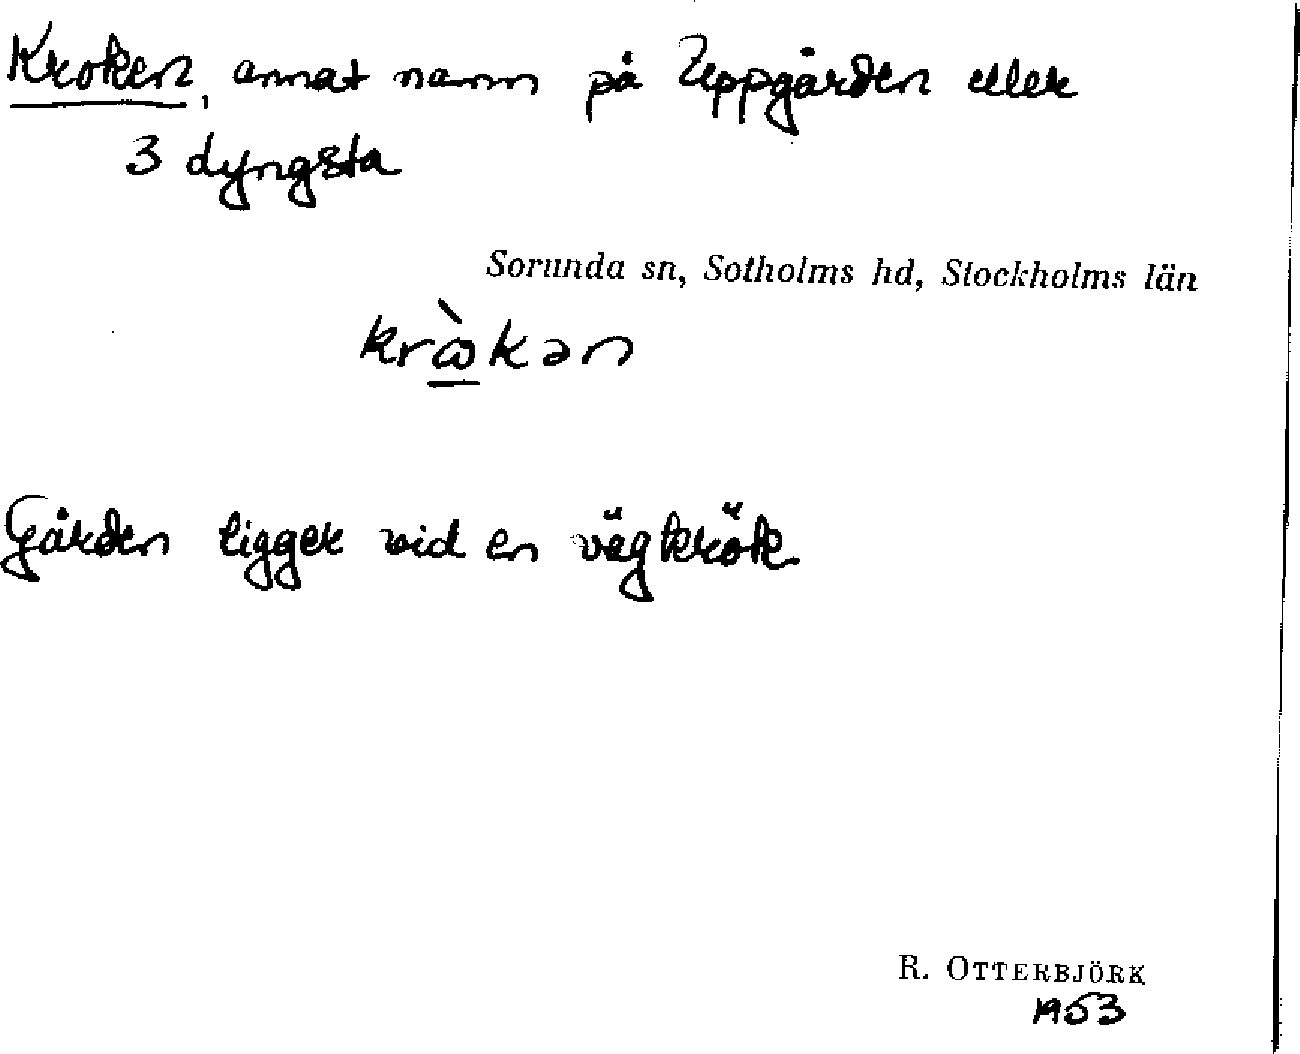 Kroken, annat namn på Uppgården eller
3 dyngsta
Sorunda sn, Sotholms hd, Stockholms län
krὼkən
Gården ligger vid en vägkrök
R. OTTERBJÖRK
1953